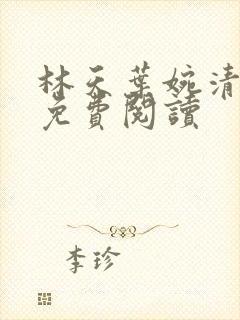 林天葉婉清
免費閱讀
李珍